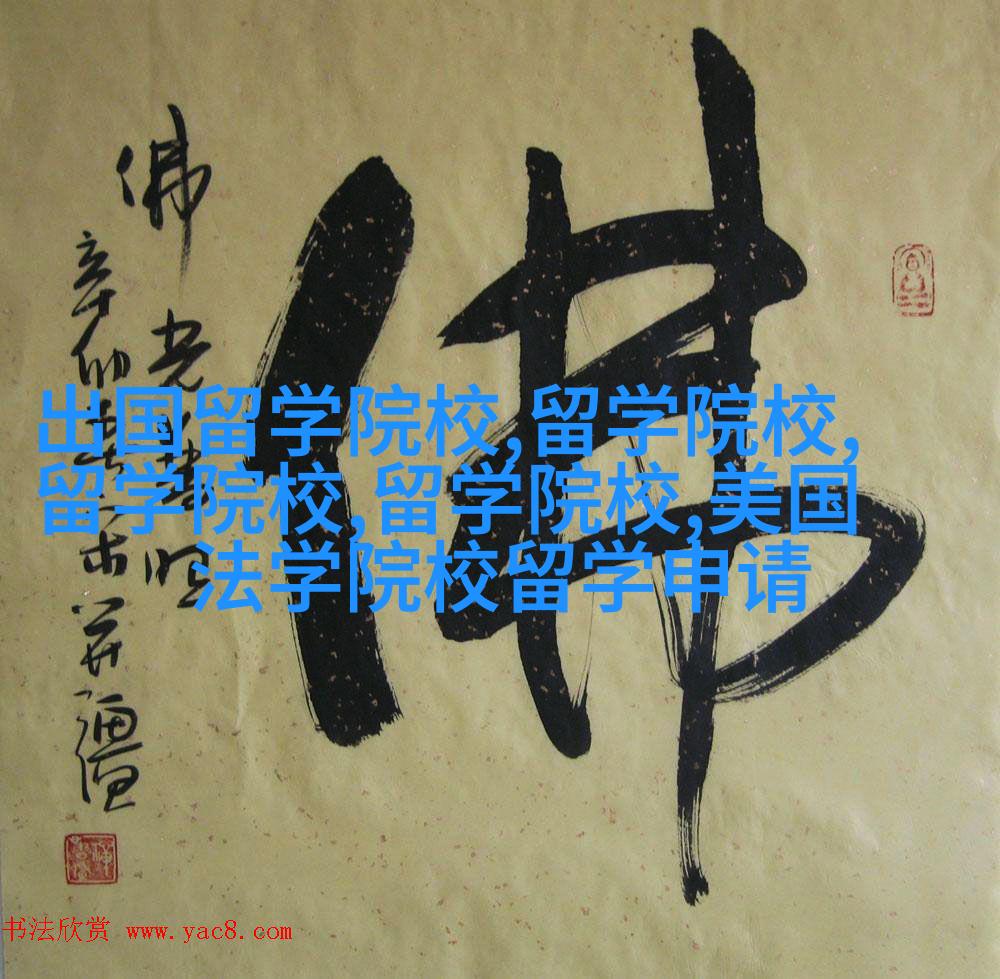 佛
佛
光普照
辛卯
出国留学院校,留学院校,
留学院校,留学院校,美国
法学院校留学申请
书法欣赏 www.yac8.com